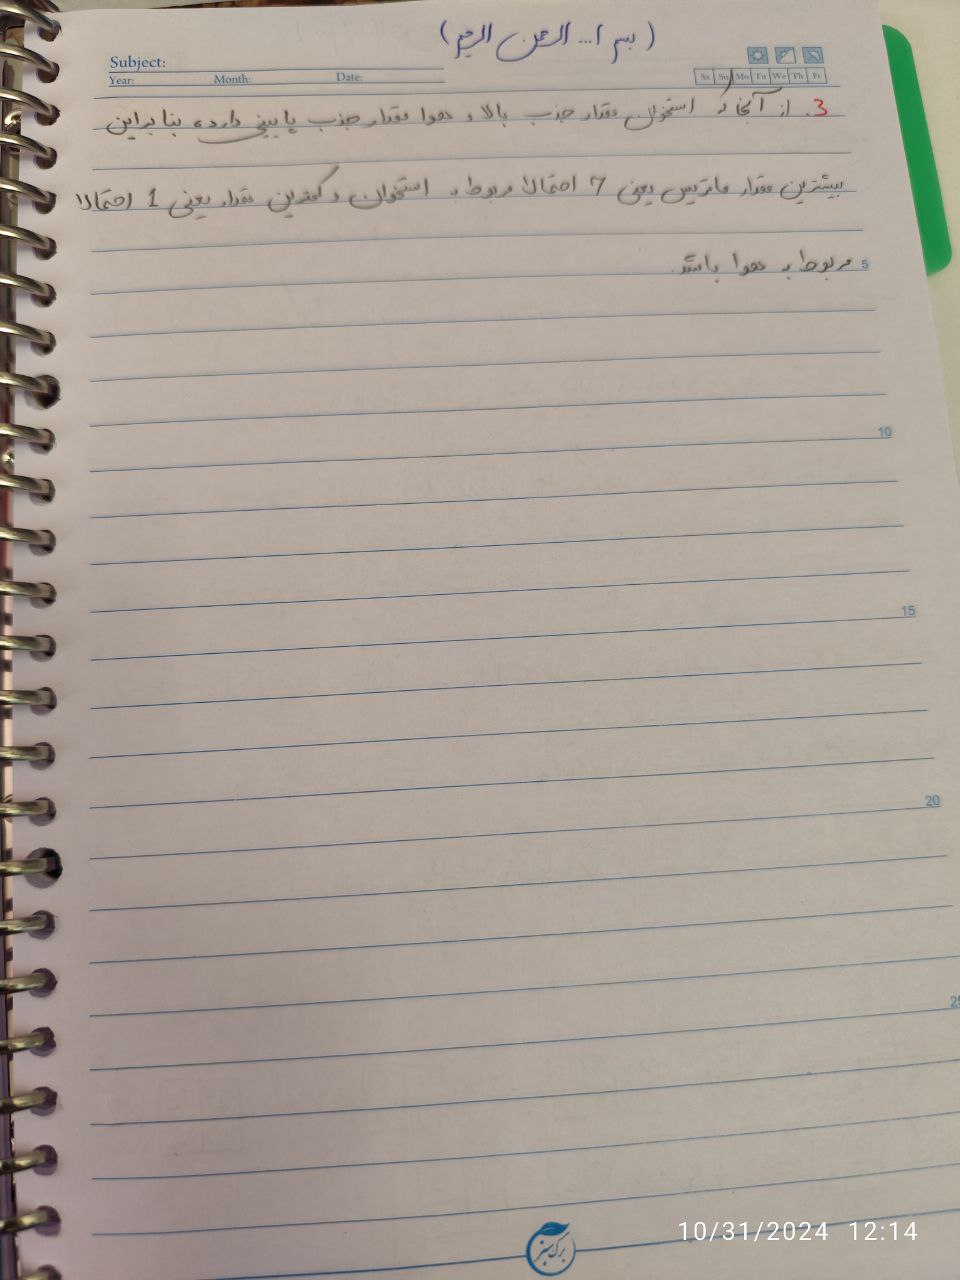 (بسم ا... الرحمن الرحیم)
Subject:
Year: Month: Date:
Sa Su Mo Tu We Th Fr
3. از آنجا که استخوان مقدار جذب بالا و هوا مقدار جذب پایینی دارد، بنابراین
بیشترین مقدار ماتریس یعنی 7 احتمالا مربوط به استخوان و کمترین مقدار یعنی 1 احتمالا
5 مربوط به هوا باشد.
10
15
20
25
برگ سبز
10/31/2024 12:14